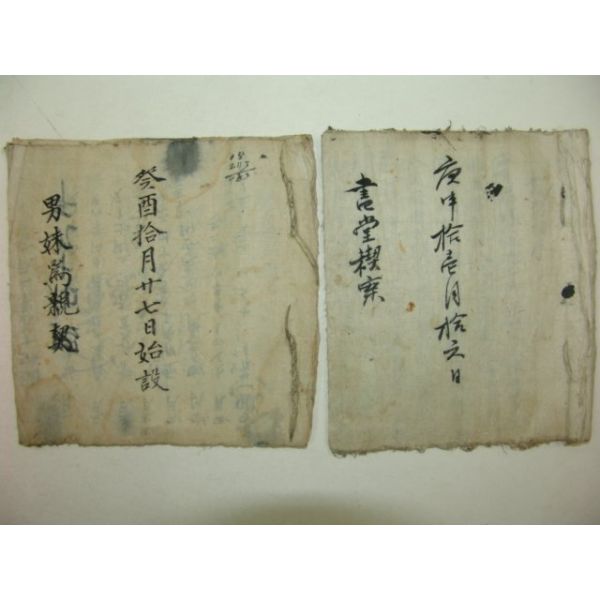 癸酉拾月廿七日始設
男妹爲親契
庚申拾壱月拾六日
書堂楔案